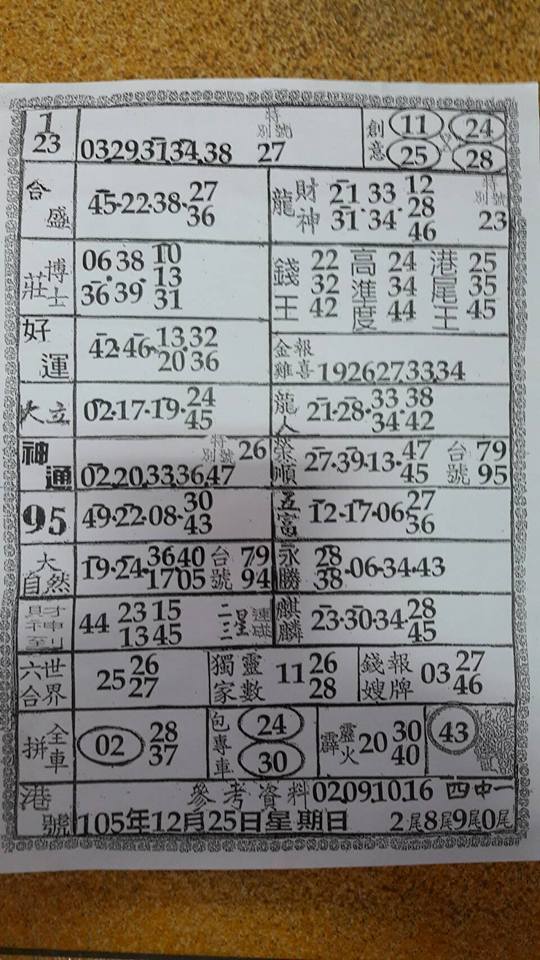 1
23
特別號
03.29.31.34.38 27
創意 11 24
25 28
合盛 45·22·38·27
36
龍 財神 21 33 12
31·34·28
46
特別號 23
博士莊 06 38 10
36·39 13
31
錢王 22
32
42
高進度 24
34
44
港尾王 25
35
45
好運 42·46·13.32
20 36
金雞報喜 19 26 27 33 34
大立 02·17·19·24
45
龍人 21·28·33 38
34·42
神通 特別號 26
02.20.33.36.47
榮順 27·39·13·47
45
台號 79
95
95 49·22·08·30
43
五富 12·17·06·27
36
大自然 19·24·36 40
17 05
台號 79
94
永勝 28
38·06·34·43
財神到 44 23 15
13 45
二三星連碰
麒麟 23·30·34·28
45
六合世界 25 26
27
獨家靈數 11 26
28
錢嫂報牌 03 27
46
全車拼 02 28
37
包專車 24
30
霹靂火 20 30
40
43
港號 參考資料 02.09.10.16 四中一
105年12月25日星期日 2尾8尾9尾0尾